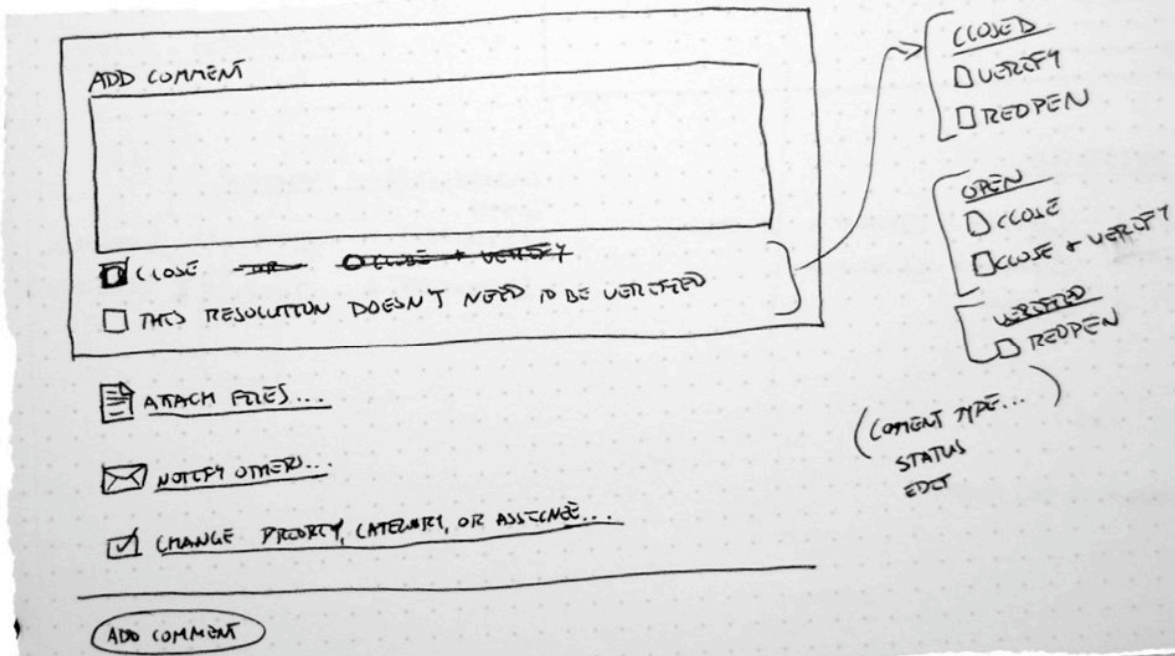 ADD COMMENT
CLOSE OR CLOSE + VERIFY
THIS RESOLUTION DOESN'T NEED TO BE VERIFIED
ATTACH FILES...
NOTIFY OTHERS...
CHANGE PRIORITY, CATEGORY, OR ASSIGNEE...
ADD COMMENT
CLOSED
VERIFY
REOPEN
OPEN
CLOSE
CLOSE + VERIFY
VERIFIED
REOPEN
(COMMENT TYPE... )
STATUS
EDIT